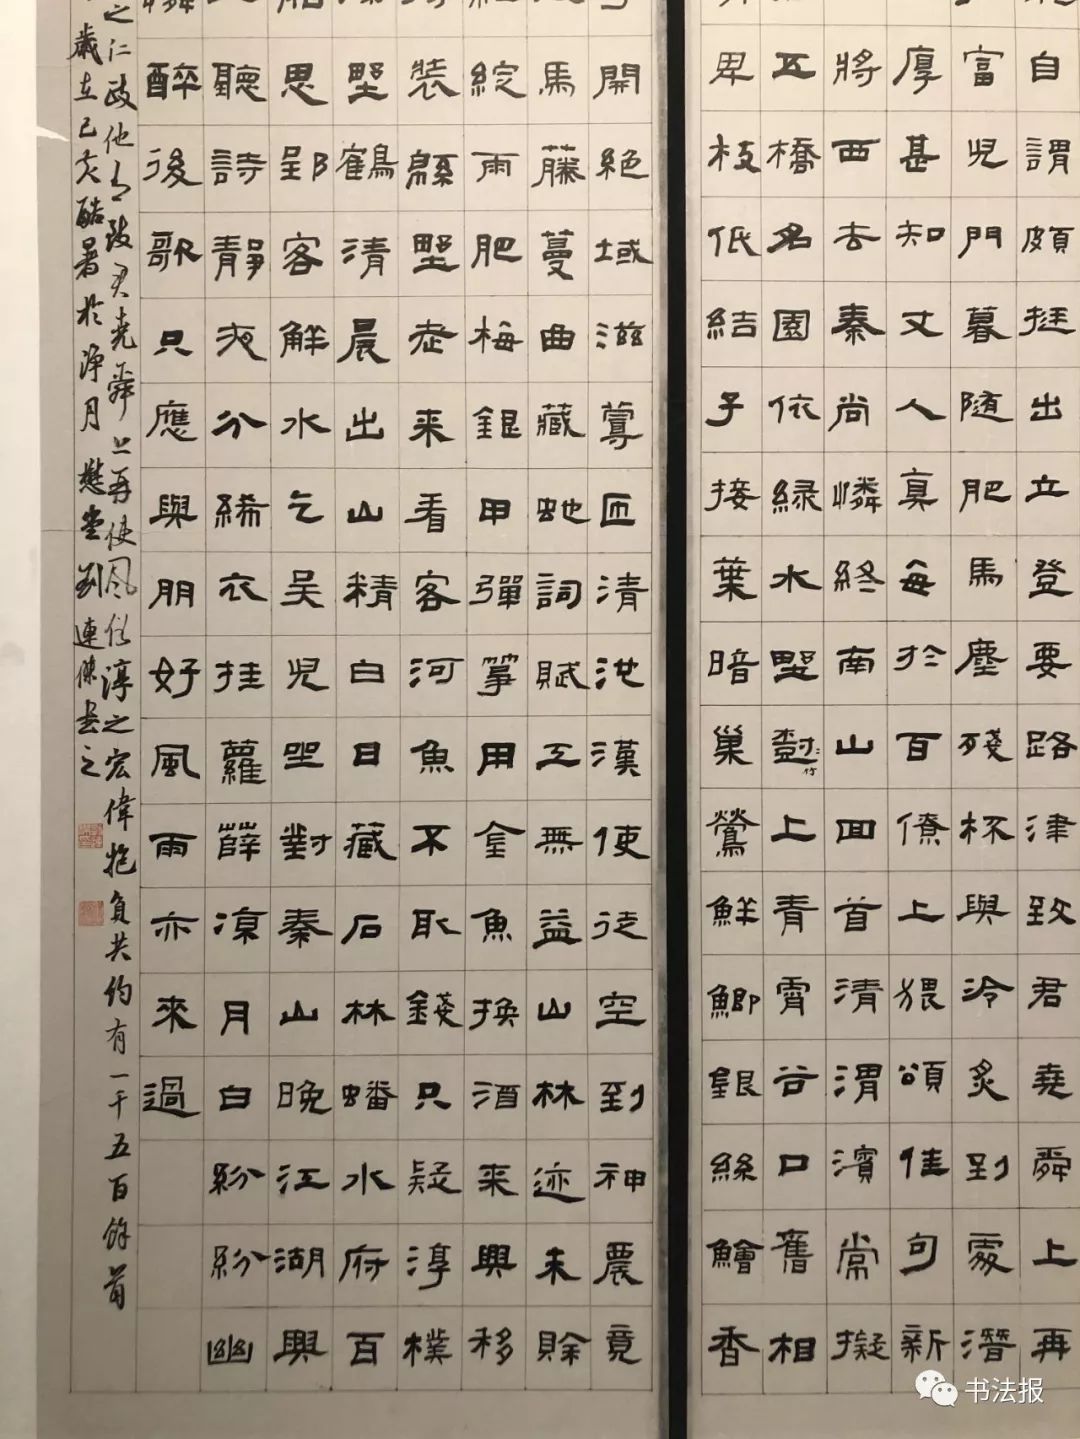 自謂頗挺出立登要路津致君堯舜上再
富兒門暮隨肥馬塵殘杯與冷炙到處潛
厚甚知丈人真每於百僚上猥頌佳句新
將西去秦尚憐終南山回首清渭濱常擬
五橋名園依綠水野竹上青霄谷口舊相
卑枝低結子接葉暗巢鶯鮮鯽銀絲鱠香
開絕域滋蔓匝清池漢使徒空到神農竟
馬藤蔓曲藏蛇詞賦工無益山林迹未賒
綻雨肥梅銀甲彈箏用金魚換酒來興移
裝緜野老來看客河魚不取錢只疑淳樸
野鶴清晨出山精白日藏石林蟠水府百
思郢客解水乞吳兒坐對秦山晚江湖興
聽詩靜夜分絺衣挂蘿薜涼月白紛紛幽
醉後歌只應與朋好風雨亦來過
之仁政他致君堯舜上再使風俗淳之宏偉抱負共約有一千五百餘首
歲在己亥酷暑於淨月懋堂劉連傑書之
书法报